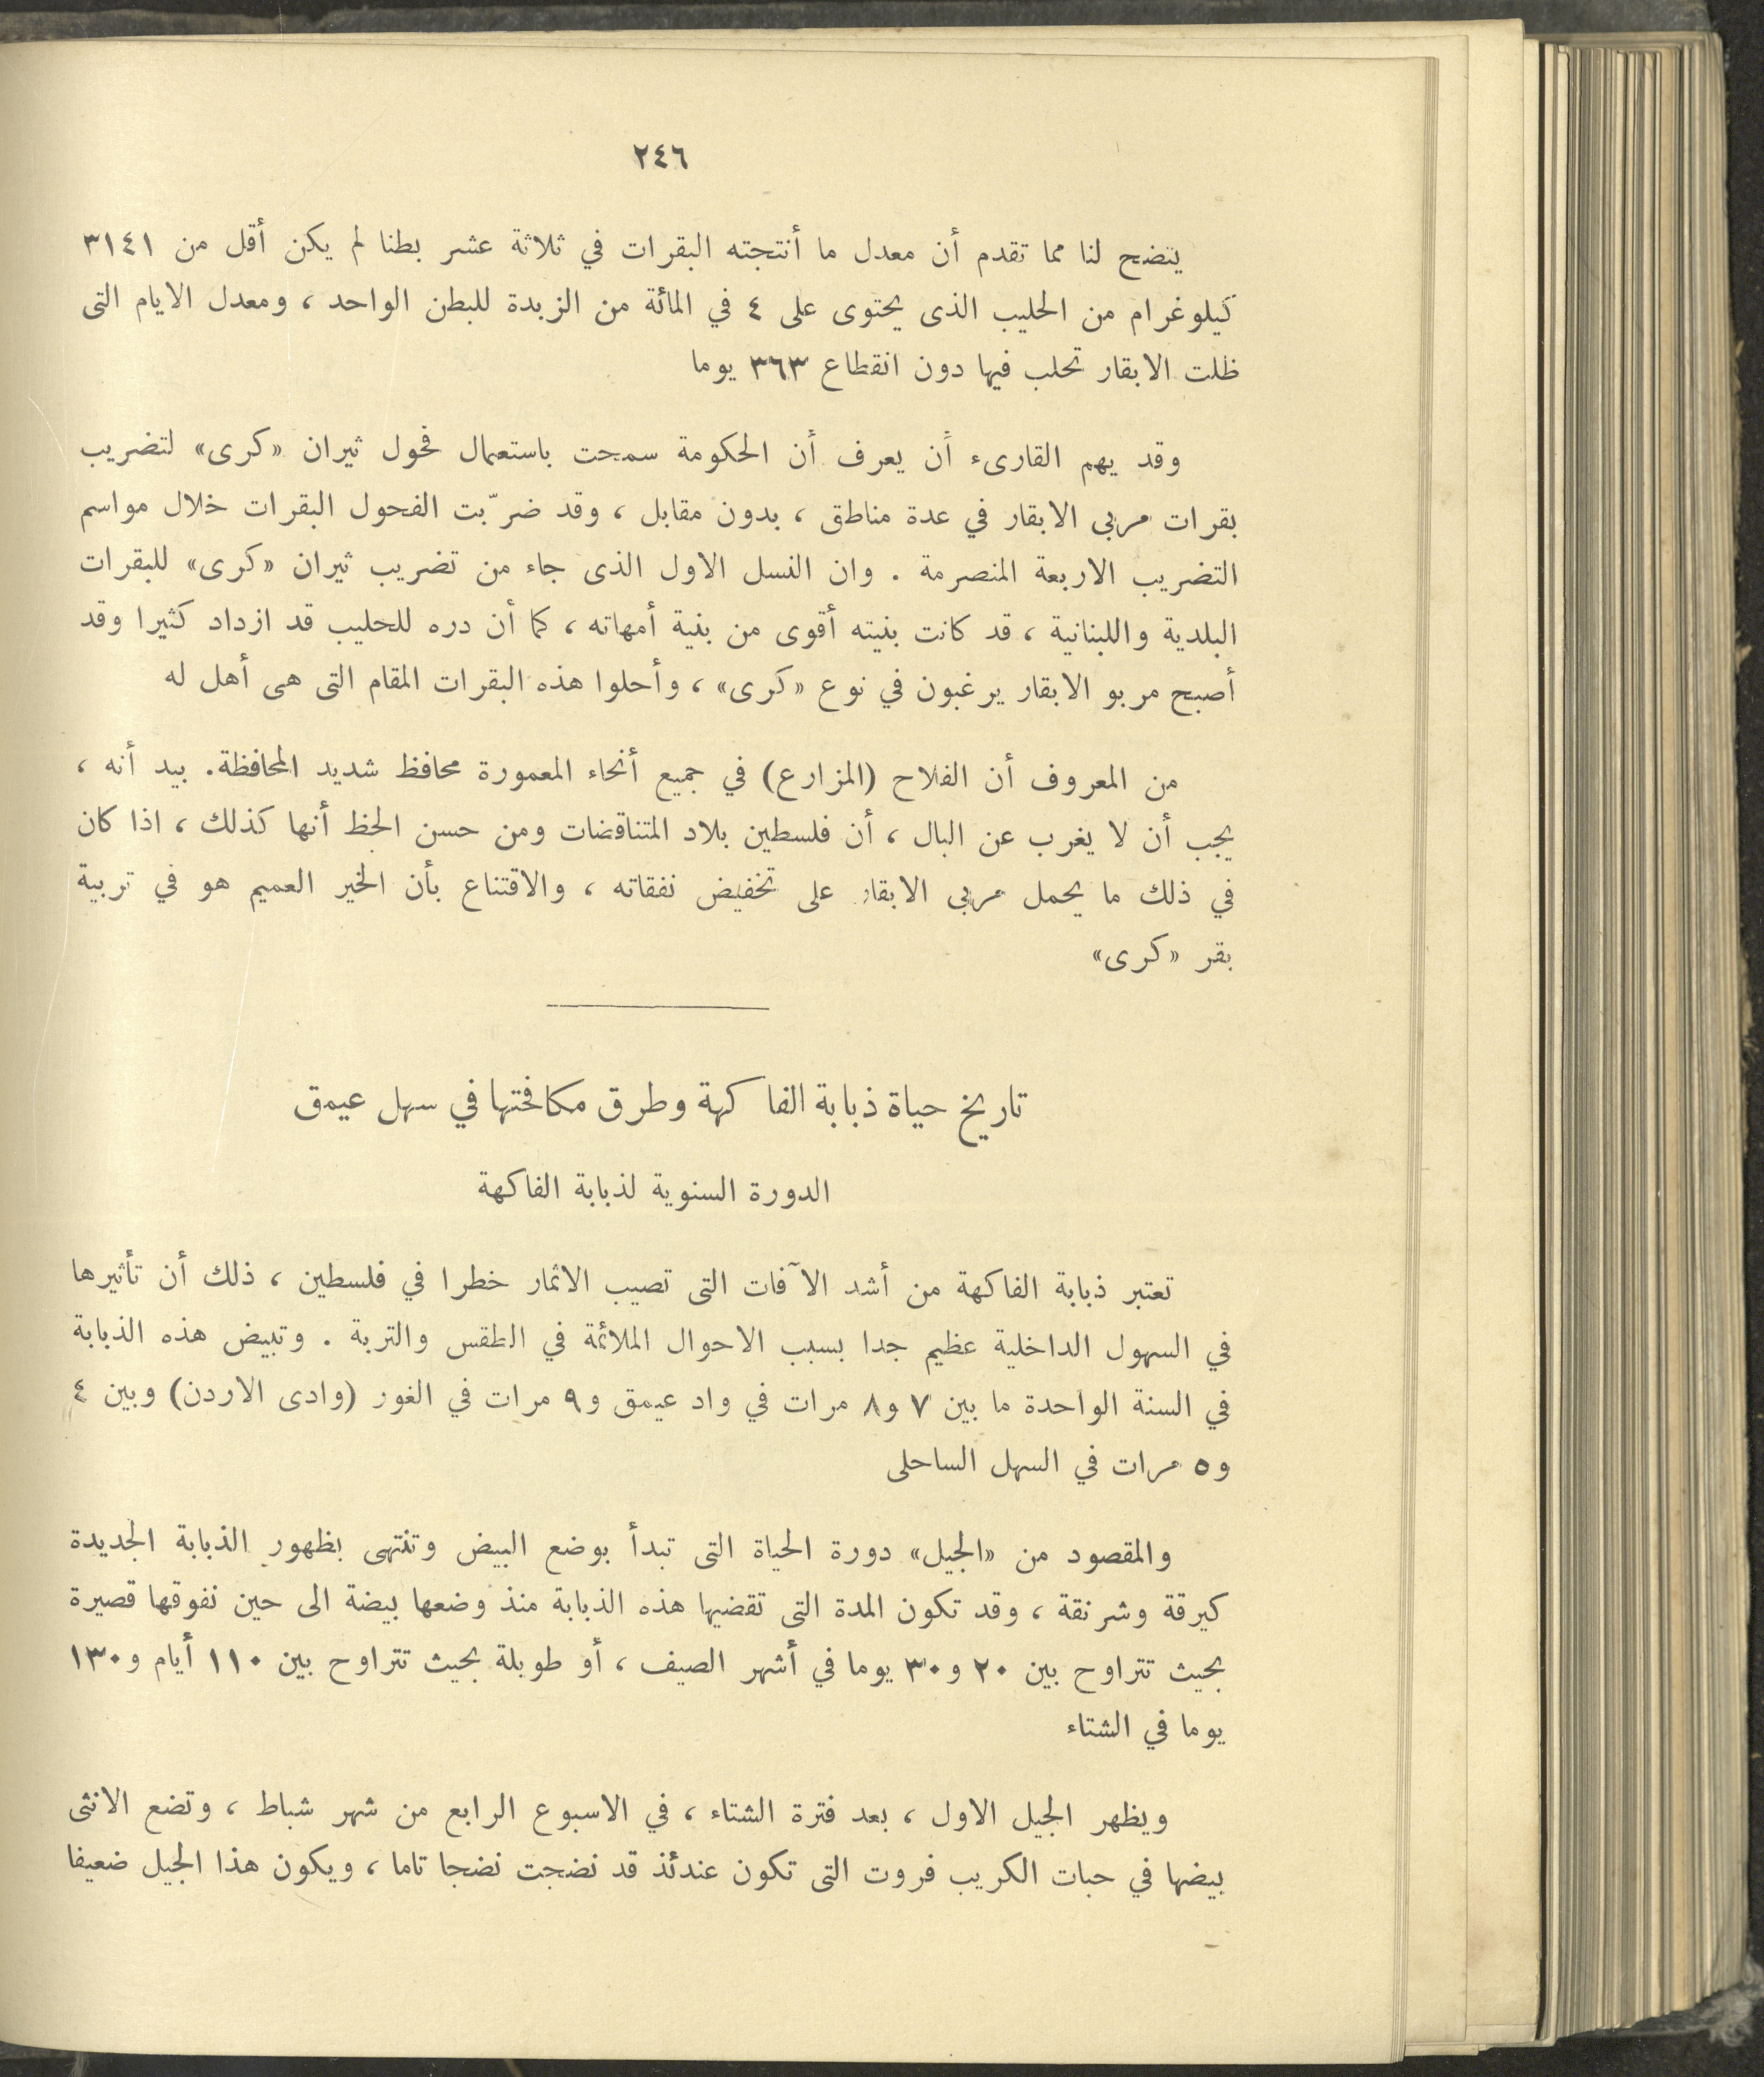 ٢٤٦
يتضح لنا مما تقدم أن معدل ما أنتجته البقرات في ثلاثة عشر بطنا لم يكن أقل من ٣١٤١
كيلوغرام من الحليب الذى يحتوى على ٤ في المائة من الزبدة للبطن الواحد ، ومعدل الايام التى
ظلت الابقار تحلب فيها دون انقطاع ٣٦٣ يوما
وقد يهم القارىء أن يعرف أن الحكومة سمحت باستعمال فحول ثيران «كرى» لتضريب
بقرات مربى الابقار في عدة مناطق ، بدون مقابل ، وقد ضرّبت الفحول البقرات خلال مواسم
التضريب الاربعة المنصرمة . وان النسل الاول الذى جاء من تضريب ثيران «كرى» للبقرات
البلدية واللبنانية ، قد كانت بنيته أقوى من بنية أمهاته ، كما أن دره للحليب قد ازداد كثيرا وقد
أصبح مربو الابقار يرغبون في نوع «كرى» ، وأحلوا هذه البقرات المقام التى هى أهل له
من المعروف أن الفلاح (المزارع) في جميع أنحاء المعمورة محافظ شديد المحافظة. بيد أنه ،
يجب أن لا يغرب عن البال ، أن فلسطين بلاد المتناقضات ومن حسن الحظ أنها كذلك ، اذا كان
في ذلك ما يحمل مربى الابقار على تخفيض نفقاته ، والاقتناع بأن الخير العميم هو في تربية
بقر «كرى»
تاريخ حياة ذبابة الفاكهة وطرق مكافحتها في سهل عيمق
الدورة السنوية لذبابة الفاكهة
تعتبر ذبابة الفاكهة من أشد الآفات التى تصيب الاثمار خطرا في فلسطين ، ذلك أن تأثيرها
في السهول الداخلية عظيم جدا بسبب الاحوال الملائمة في الطقس والتربة . وتبيض هذه الذبابة
في السنة الواحدة ما بين ٧ و٨ مرات في واد عيمق و٩ مرات في الغور (وادى الاردن) وبين ٤
و٥ مرات في السهل الساحلى
والمقصود من «الجيل» دورة الحياة التى تبدأ بوضع البيض وتنتهى بظهور الذبابة الجديدة
كيرقة وشرنقة ، وقد تكون المدة التى تقضيها هذه الذبابة منذ وضعها بيضة الى حين نفوقها قصيرة
بحيث تتراوح بين ٢٠ و٣٠ يوما في أشهر الصيف ، أو طويلة بحيث تتراوح بين ١١٠ أيام و١٣٠
يوما في الشتاء
ويظهر الجيل الاول ، بعد فترة الشتاء ، في الاسبوع الرابع من شهر شباط ، وتضع الانثى
بيضها في حبات الكريب فروت التى تكون عندئذ قد نضجت نضجا تاما ، ويكون هذا الجيل ضعيفا